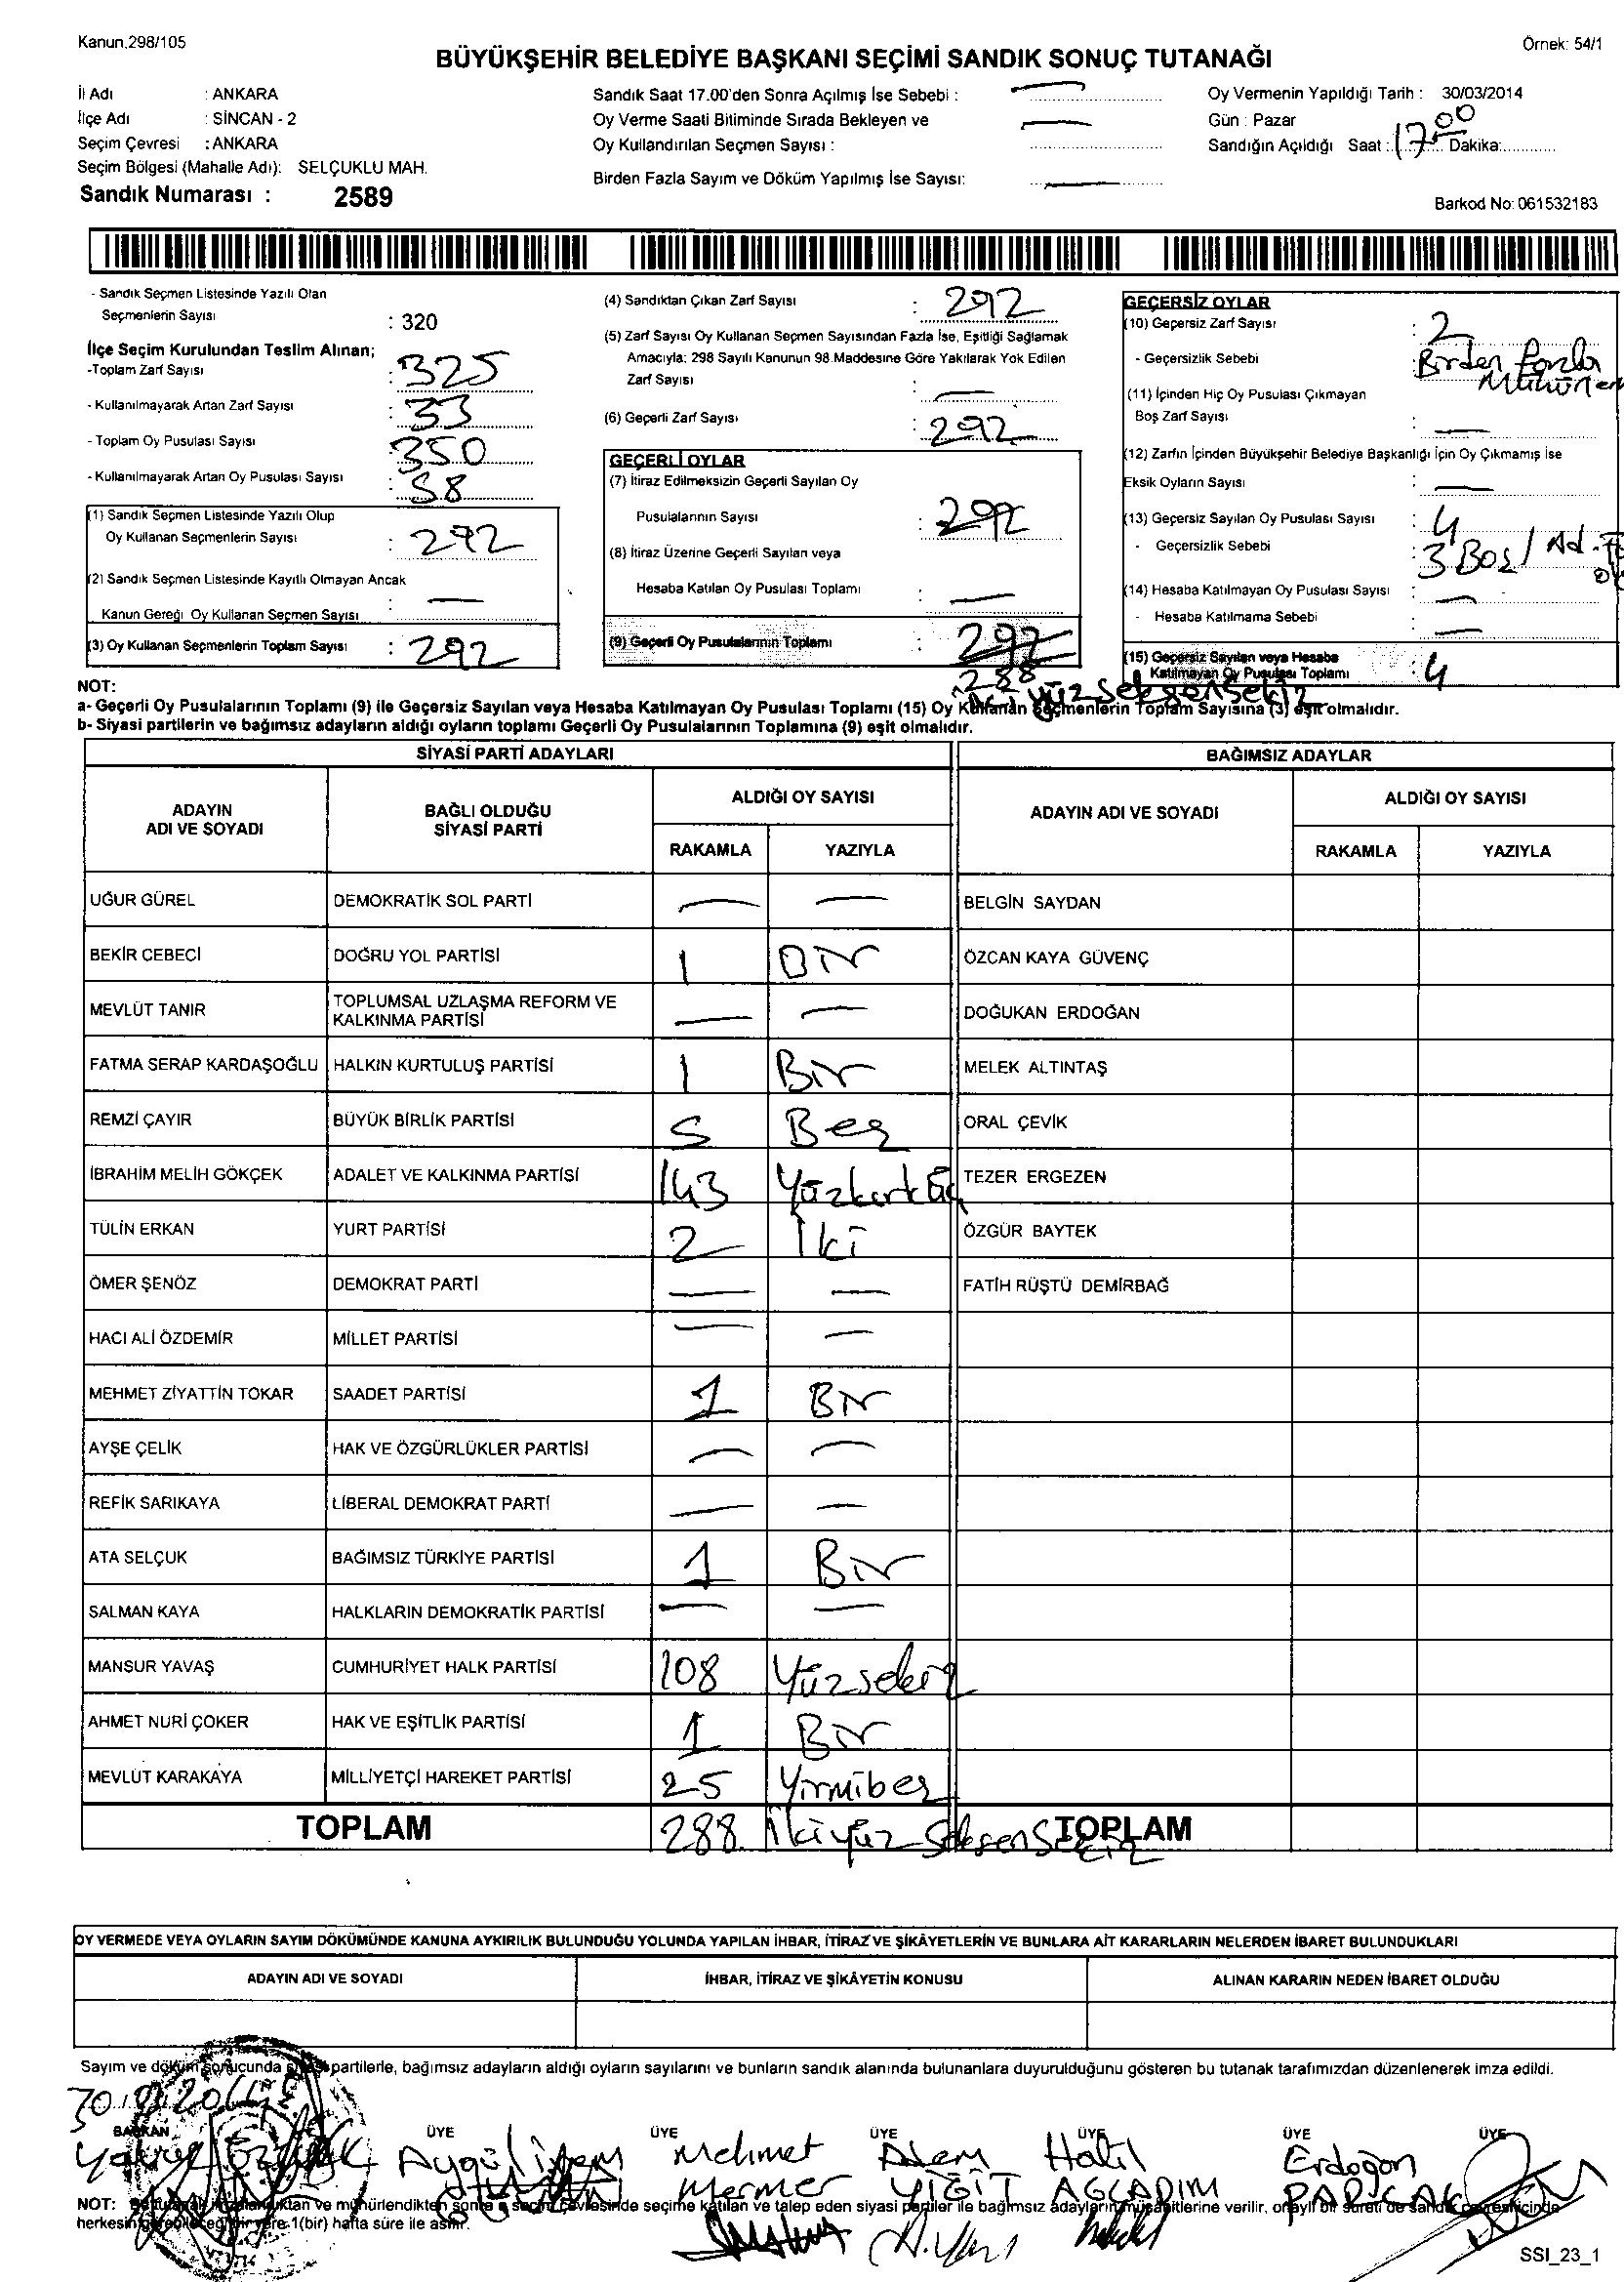 Kanun.298/105
Örnek: 54/1
BÜYÜKŞEHİR BELEDİYE BAŞKANI SEÇİMİ SANDIK SONUÇ TUTANAĞI
İl Adı : ANKARA
İlçe Adı : SİNCAN - 2
Seçim Çevresi : ANKARA
Seçim Bölgesi (Mahalle Adı): SELÇUKLU MAH.
Sandık Numarası : 2589
Sandık Saat 17.00'den Sonra Açılmış İse Sebebi : —
Oy Verme Saati Bitiminde Sırada Bekleyen ve —
Oy Kullandırılan Seçmen Sayısı :
Birden Fazla Sayım ve Döküm Yapılmış İse Sayısı: —
Oy Vermenin Yapıldığı Tarih : 30/03/2014
Gün : Pazar
Sandığın Açıldığı Saat : 17 00 Dakika:
Barkod No: 061532183
- Sandık Seçmen Listesinde Yazılı Olan
Seçmenlerin Sayısı : 320
İlçe Seçim Kurulundan Teslim Alınan;
-Toplam Zarf Sayısı : 325
- Kullanılmayarak Artan Zarf Sayısı : 33
- Toplam Oy Pusulası Sayısı : 350
- Kullanılmayarak Artan Oy Pusulası Sayısı : 58
(1) Sandık Seçmen Listesinde Yazılı Olup
Oy Kullanan Seçmenlerin Sayısı : 292
(2) Sandık Seçmen Listesinde Kayıtlı Olmayan Ancak
Kanun Gereği Oy Kullanan Seçmen Sayısı : —
(3) Oy Kullanan Seçmenlerin Toplam Sayısı : 292
(4) Sandıktan Çıkan Zarf Sayısı : 292
(5) Zarf Sayısı Oy Kullanan Seçmen Sayısından Fazla İse, Eşitliği Sağlamak
Amacıyla; 298 Sayılı Kanunun 98.Maddesine Göre Yakılarak Yok Edilen
Zarf Sayısı : —
(6) Geçerli Zarf Sayısı : 292
GEÇERLİ OYLAR
(7) İtiraz Edilmeksizin Geçerli Sayılan Oy
Pusulalarının Sayısı : 292
(8) İtiraz Üzerine Geçerli Sayılan veya
Hesaba Katılan Oy Pusulası Toplamı : —
(9) Geçerli Oy Pusulalarının Toplamı : 292
288
İki yüz seksensekiz
GEÇERSİZ OYLAR
(10) Geçersiz Zarf Sayısı : 2
- Geçersizlik Sebebi : Birden fazla
(11) İçinden Hiç Oy Pusulası Çıkmayan
Boş Zarf Sayısı : —
(12) Zarfın İçinden Büyükşehir Belediye Başkanlığı İçin Oy Çıkmamış İse
Eksik Oyların Sayısı : —
(13) Geçersiz Sayılan Oy Pusulası Sayısı : 4
- Geçersizlik Sebebi : 3 Boş /
(14) Hesaba Katılmayan Oy Pusulası Sayısı : —
- Hesaba Katılmama Sebebi : —
(15) Geçersiz Sayılan veya Hesaba
Katılmayan Oy Pusulası Toplamı : 4
NOT:
a- Geçerli Oy Pusulalarının Toplamı (9) ile Geçersiz Sayılan veya Hesaba Katılmayan Oy Pusulası Toplamı (15) Oy Kullanan Seçmenlerin Toplam Sayısına (3) eşit olmalıdır.
b- Siyasi partilerin ve bağımsız adayların aldığı oyların toplamı Geçerli Oy Pusulalarının Toplamına (9) eşit olmalıdır.
SİYASİ PARTİ ADAYLARI
BAĞIMSIZ ADAYLAR
ADAYIN ADI VE SOYADI
BAĞLI OLDUĞU SİYASİ PARTİ
ALDIĞI OY SAYISI
RAKAMLA YAZIYLA
ADAYIN ADI VE SOYADI
ALDIĞI OY SAYISI
RAKAMLA YAZIYLA
UĞUR GÜREL DEMOKRATİK SOL PARTİ — — BELGİN SAYDAN
BEKİR CEBECİ DOĞRU YOL PARTİSİ 1 Bir ÖZCAN KAYA GÜVENÇ
MEVLÜT TANIR TOPLUMSAL UZLAŞMA REFORM VE KALKINMA PARTİSİ — — DOĞUKAN ERDOĞAN
FATMA SERAP KARDAŞOĞLU HALKIN KURTULUŞ PARTİSİ 1 Bir MELEK ALTINTAŞ
REMZİ ÇAYIR BÜYÜK BİRLİK PARTİSİ 5 Beş ORAL ÇEVİK
İBRAHİM MELİH GÖKÇEK ADALET VE KALKINMA PARTİSİ 143 Yüzkırküç TEZER ERGEZEN
TÜLİN ERKAN YURT PARTİSİ 2 İki ÖZGÜR BAYTEK
ÖMER ŞENÖZ DEMOKRAT PARTİ — — FATİH RÜŞTÜ DEMİRBAĞ
HACI ALİ ÖZDEMİR MİLLET PARTİSİ — —
MEHMET ZİYATTİN TOKAR SAADET PARTİSİ 1 Bir
AYŞE ÇELİK HAK VE ÖZGÜRLÜKLER PARTİSİ — —
REFİK SARIKAYA LİBERAL DEMOKRAT PARTİ — —
ATA SELÇUK BAĞIMSIZ TÜRKİYE PARTİSİ 1 Bir
SALMAN KAYA HALKLARIN DEMOKRATİK PARTİSİ — —
MANSUR YAVAŞ CUMHURİYET HALK PARTİSİ 108 Yüzsekiz
AHMET NURİ ÇOKER HAK VE EŞİTLİK PARTİSİ 1 Bir
MEVLÜT KARAKAYA MİLLİYETÇİ HAREKET PARTİSİ 25 Yirmibeş
TOPLAM 288 İkiyüz Seksensekiz TOPLAM
OY VERMEDE VEYA OYLARIN SAYIM DÖKÜMÜNDE KANUNA AYKIRILIK BULUNDUĞU YOLUNDA YAPILAN İHBAR, İTİRAZ VE ŞİKÂYETLERİN VE BUNLARA AİT KARARLARIN NELERDEN İBARET BULUNDUKLARI
ADAYIN ADI VE SOYADI İHBAR, İTİRAZ VE ŞİKÂYETİN KONUSU ALINAN KARARIN NEDEN İBARET OLDUĞU
Sayım ve döküm sonucunda siyasi partilerle, bağımsız adayların aldığı oyların sayılarını ve bunların sandık alanında bulunanlara duyurulduğunu gösteren bu tutanak tarafımızdan düzenlenerek imza edildi.
BAŞKAN ÜYE ÜYE ÜYE ÜYE ÜYE ÜYE
Aygül Mehmet Adem Halil Erdoğan
Mermer YİĞİT AĞCADIM PARÇAK
NOT: Bu tutanak imzalandıktan ve mühürlendikten sonra o seçim çevresinde seçime katılan ve talep eden siyasi partiler ile bağımsız adayların müşahitlerine verilir, onaylı bir sureti de sandık çevresi içinde
herkesin görebileceği bir yere 1(bir) hafta süre ile asılır.
SSI_23_1